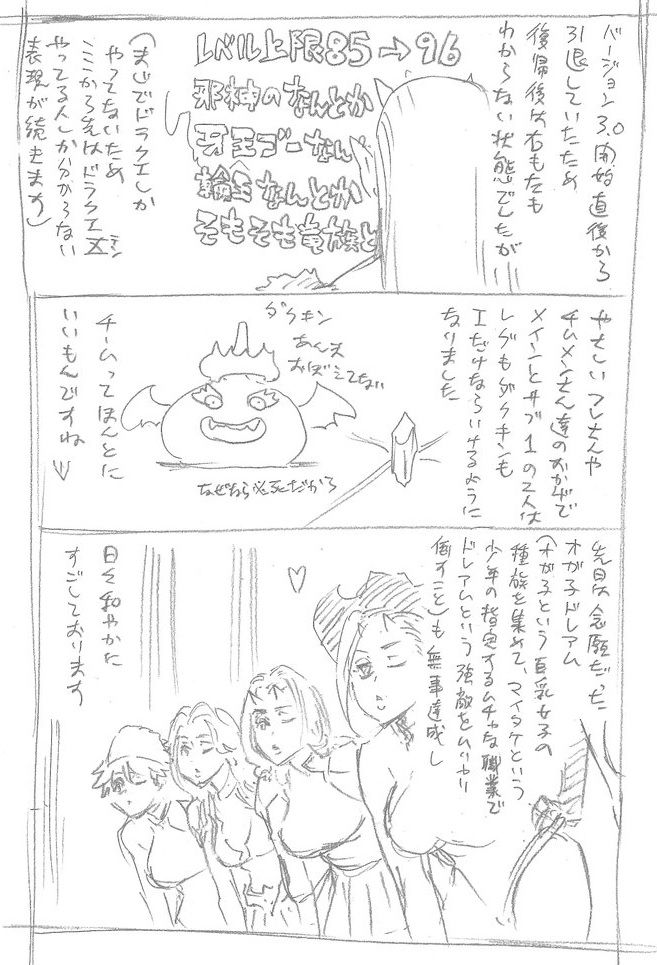 バージョン3.0開始直後から
引退していたため
復帰後は右も左も
わからない状態でしたが
レベル上限85→96
邪神のなんとか
牙王ゴーなん
輪王なんとか
そもそも竜族と
(まじでドラクエしか
やってないため
ここから先はドラクエⅩ
やってる人しか分からない
表現が続きます)
やさしいフレさんや
チムメンさん達のおかげで
メインとサブ1の2人は
レグもダクキンも
Ⅰだけならいけるように
なりました
ダクキン
あんま
おぼえてない
なぜなら必死だから
チームってほんとに
いいもんですね
先日は念願だった
オガ子ドレアム
(オガ子という巨乳女子の
種族を集めて、マイタケという
少年の指定するムチャな職業で
ドレアムという強敵をムリヤリ
倒すこと)も無事達成し
日々和やかに
すごしております